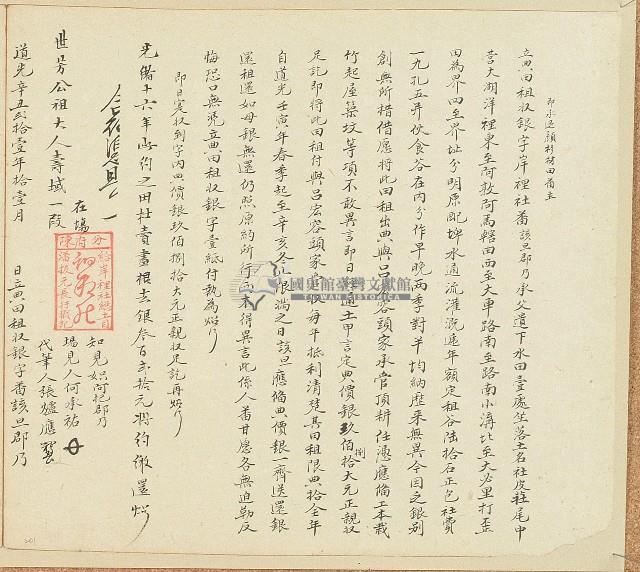 即永遠顏村材田番主
立典田租收銀字岸裡社番該旦郡乃承父遺下水田壹處坐落土名社皮莊尾中
营大湖洋裡東至阿敦阿馬轄田西至大車路南至路南小溝北至大必里打歪
田為界四至界址分明原配埤水通流灌溉遞年額定租谷陸拾石正色社費
一九扣五并伙食谷在内分作早晚兩季對半均納歷來無異今因乏銀別
創無所措借愿將此田租出典與吕宏容頭家承管頂耕任憑應佃工本栽
竹起屋築坟等項不敢異言即日通土甲言定典價銀玖佰捌拾大元正親收
足訖即將此田租付與吕宏容頭家掌收每年抵利清楚其田租限典拾全年
自道光壬寅年春季起至辛亥冬止限滿之日該旦應俻典價銀一齊送還銀
還租還如母銀無還仍照原約所行不得異言此係人番甘愿各無迫勒反
悔恐口無凴立典田租收銀字壹紙付執為炤
即日寔收到字内典價銀玖佰捌拾大元正親收足訖再炤
光緒十六年 約之田杜賣盡根去銀叁百弍拾元將約繳還炤
世芳公祖大人壽域一段
在塲
知見 阿把郡乃
塲見人何承祐
代筆人張爐應
道光辛丑弍拾壹年拾壹月 日立典田租收銀字番該旦郡乃
國史館臺灣文獻館
TAIWAN HISTORICA
201